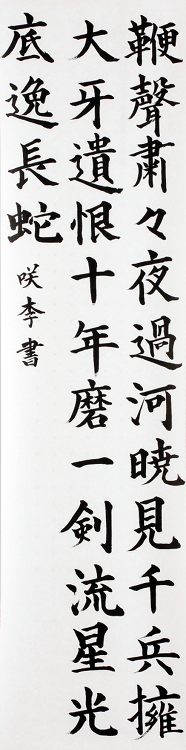 鞭聲肅々夜過河暁見千兵擁
大牙遺恨十年磨一剣流星光
底逸長蛇
咲李書